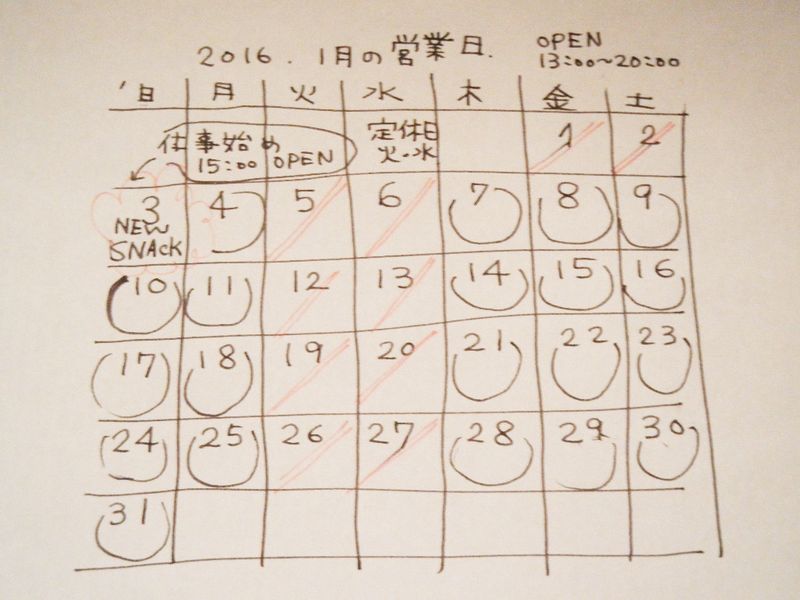 2016. 1月の営業日.
OPEN
13:00~20:00
日 月 火 水 木 金 土
仕事始め
15:00 OPEN
定休日
火・水
1 2
3 4 5 6 7 8 9
NEW
SNACK
10 11 12 13 14 15 16
17 18 19 20 21 22 23
24 25 26 27 28 29 30
31